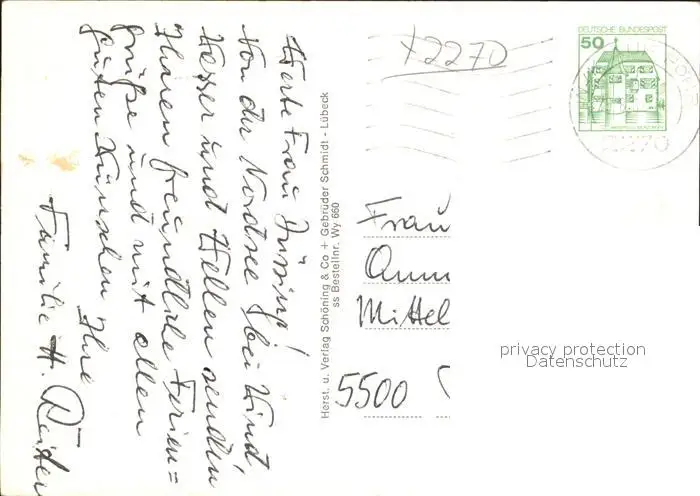 Werte Frau Düssing!
Von der Nordsee bei Wind,
Wasser und Wellen senden
Ihnen freundliche Ferien=
grüße und mit allen
guten Wünschen Ihre
Familie H.
Herst. u. Verlag Schöning & Co + Gebrüder Schmidt - Lübeck
ss Bestellnr. Wy 660
+2270
DEUTSCHE BUNDESPOST
50
2270
Frau
Mittel
5500
privacy protection
Datenschutz